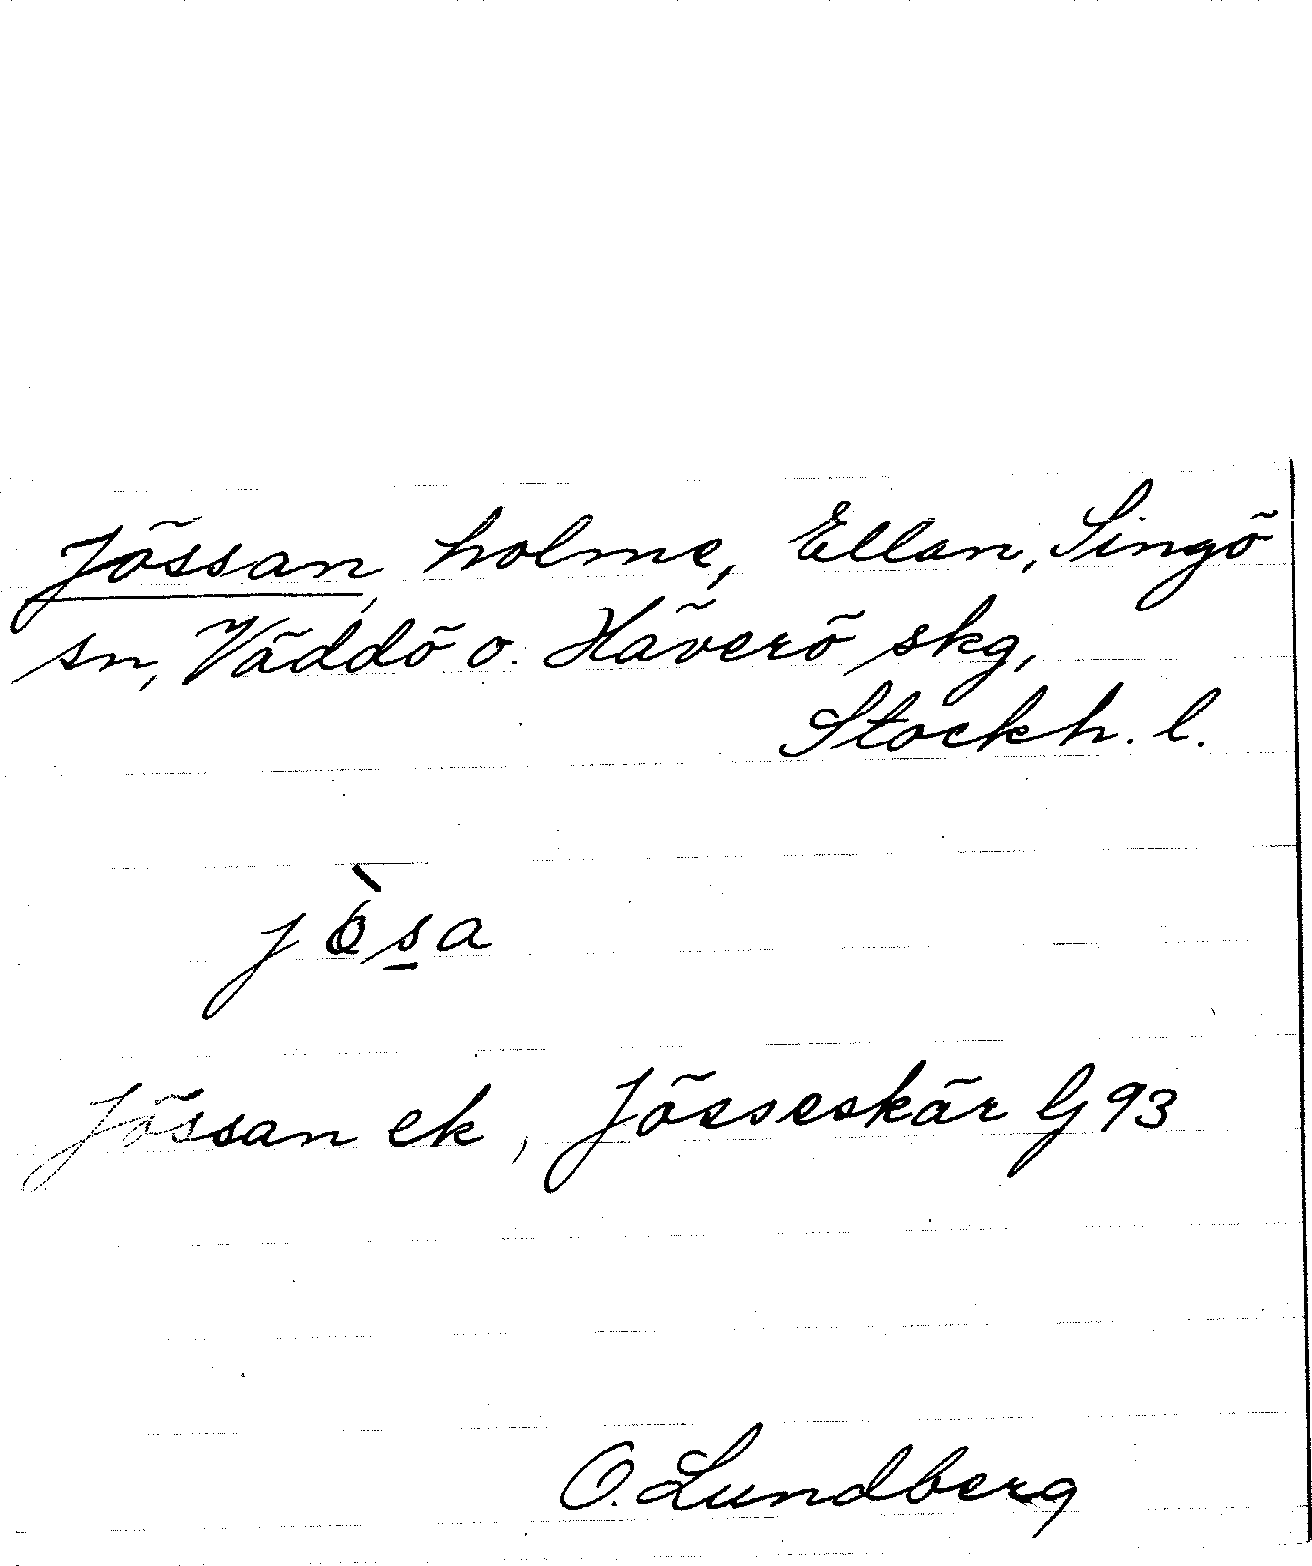 Jössan, holme, Ellan, Singö
sn, Väddö o. Häverö skg,
Stockh. l.
jòsa
Jössan ek, Jösseskär G 93
O. Lundberg